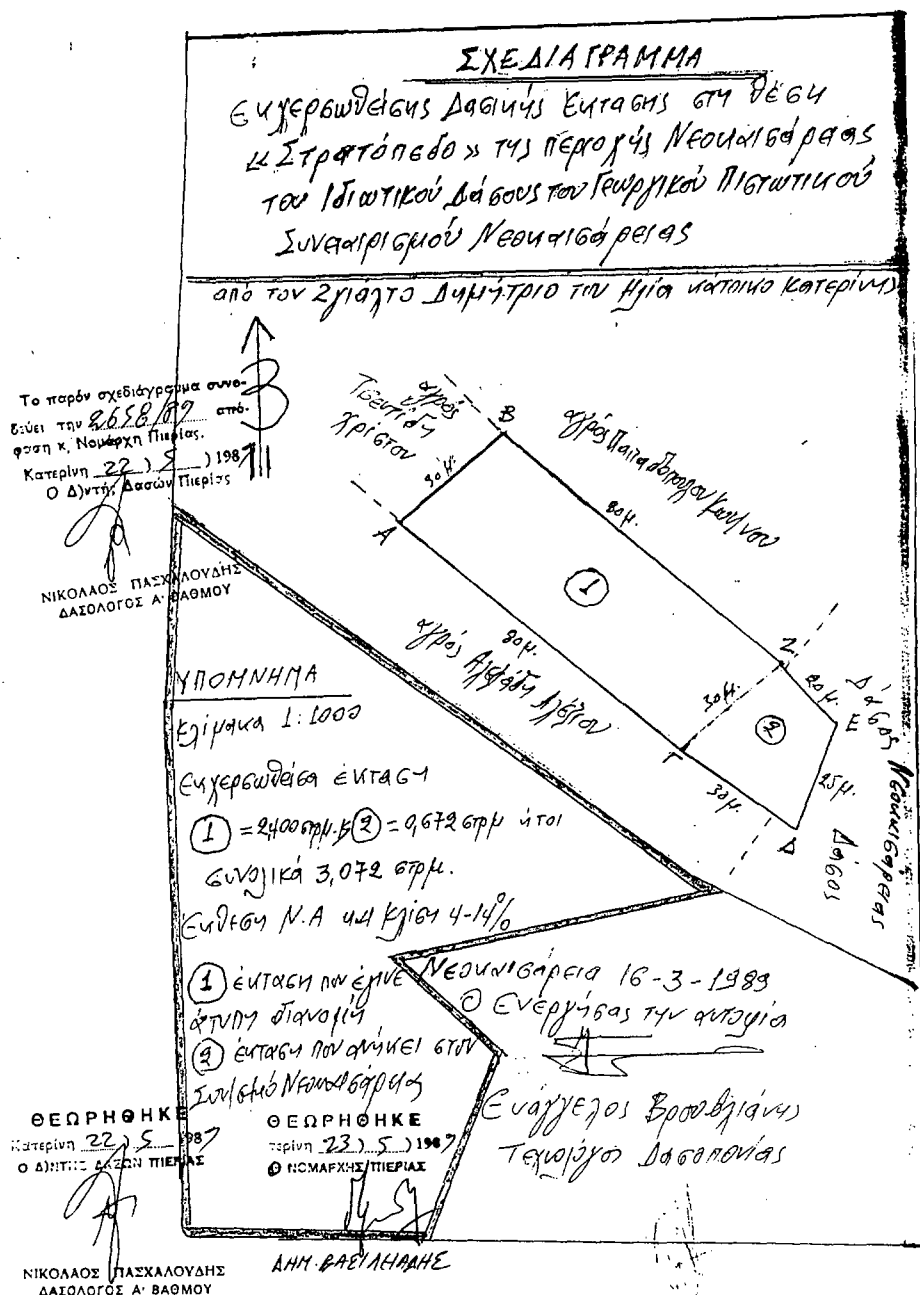 ΣΧΕΔΙΑΓΡΑΜΜΑ
Εκχερσωθείσης Δασικής Έκτασης στη θέση
«Στρατόπεδο» της περιοχής Νεοκαισάρειας
του Ιδιωτικού Δάσους του Γεωργικού Πιστωτικού
Συνεταιρισμού Νεοκαισάρειας
από τον Ζγιάλτο Δημήτριο του Ηλία κάτοικο Κατερίνης
Β
Το παρόν σχεδιάγραμμα συνο-
δεύει την 2658/89 από-
φαση κ. Νομάρχη Πιερίας.
Κατερίνη 22 ) 5 ) 1989
Ο Δ)ντής Δασών Πιερίας
ΝΙΚΟΛΑΟΣ ΠΑΣΧΑΛΟΥΔΗΣ
ΔΑΣΟΛΟΓΟΣ Α' ΒΑΘΜΟΥ
αγρός
Τσεντίδη
Χρίστου
Β
30μ.
Α
αγρός Παπαδοπούλου
80μ.
1
αγρός
80μ.
Ζ
30μ.
20μ.
Ε
2
Γ
30μ.
25μ.
Δ
Δάσος Νεοκαισάρειας
Δάσος
ΥΠΟΜΝΗΜΑ
Κλίμακα 1:1000
Εκχερσωθείσα έκταση
1 = 2,400 στρμ. 2 = 0,672 στρμ ήτοι
συνολικά 3,072 στρμ.
Έκθεση Ν.Α και κλίση 4-14%
1 έκταση που έγινε
άτυπη διανομή
2 έκταση που ανήκει στον
Συν/σμό Νεοκαισάρειας
Νεοκαισάρεια 16-3-1989
Ο Ενεργήσας την αυτοψία
Ευάγγελος
Δασοπονίας
ΘΕΩΡΗΘΗΚΕ
Κατερίνη 22 ) 5 1989
Ο Δ)ΝΤΗΣ ΔΑΣΩΝ ΠΙΕΡΙΑΣ
ΝΙΚΟΛΑΟΣ ΠΑΣΧΑΛΟΥΔΗΣ
ΔΑΣΟΛΟΓΟΣ Α' ΒΑΘΜΟΥ
ΘΕΩΡΗΘΗΚΕ
τερίνη 23 ) 5 ) 1989
Ο ΝΟΜΑΡΧΗΣ ΠΙΕΡΙΑΣ
ΔΗΜ. ΒΑΣΙΛΕΙΑΔΗΣ